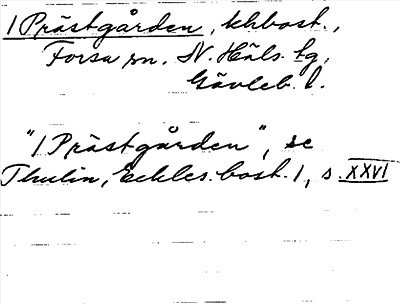 1 Prästgården, khbost.,
Forsa sn. N. Häls. tg,
Gävleb. l.
"1 Prästgården", se
Thulin, Eckles. bost. 1, s. XXVI